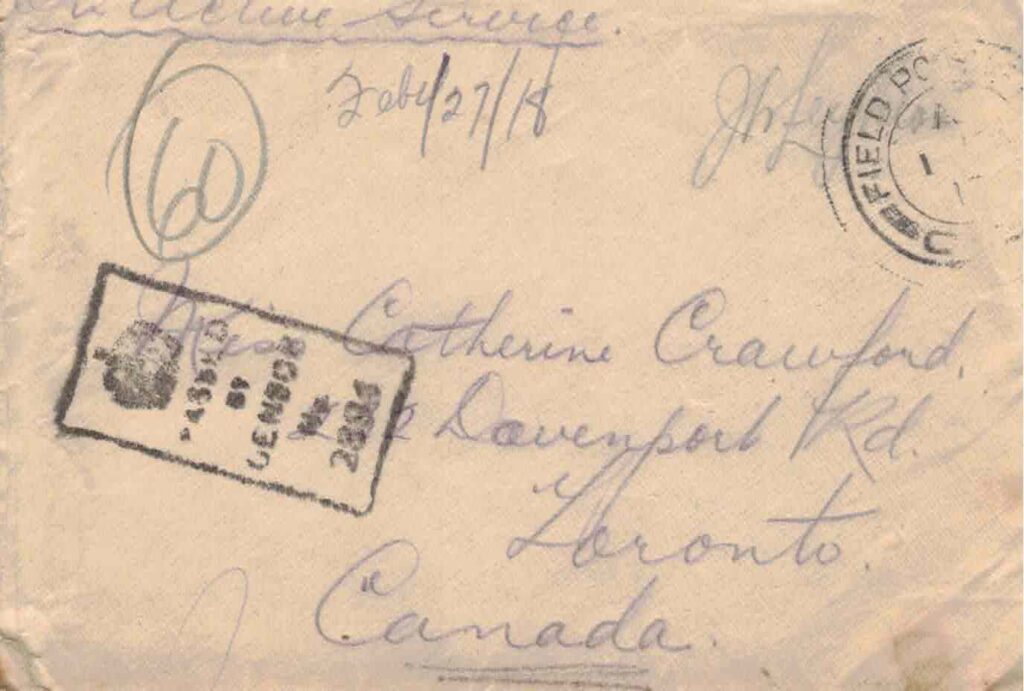 On Active Service.
Feby/27/18
60
FIELD PO
PASSED
BY
CENSOR
No
Miss Catherine Crawford.
Davenport Rd.
Toronto.
Canada.